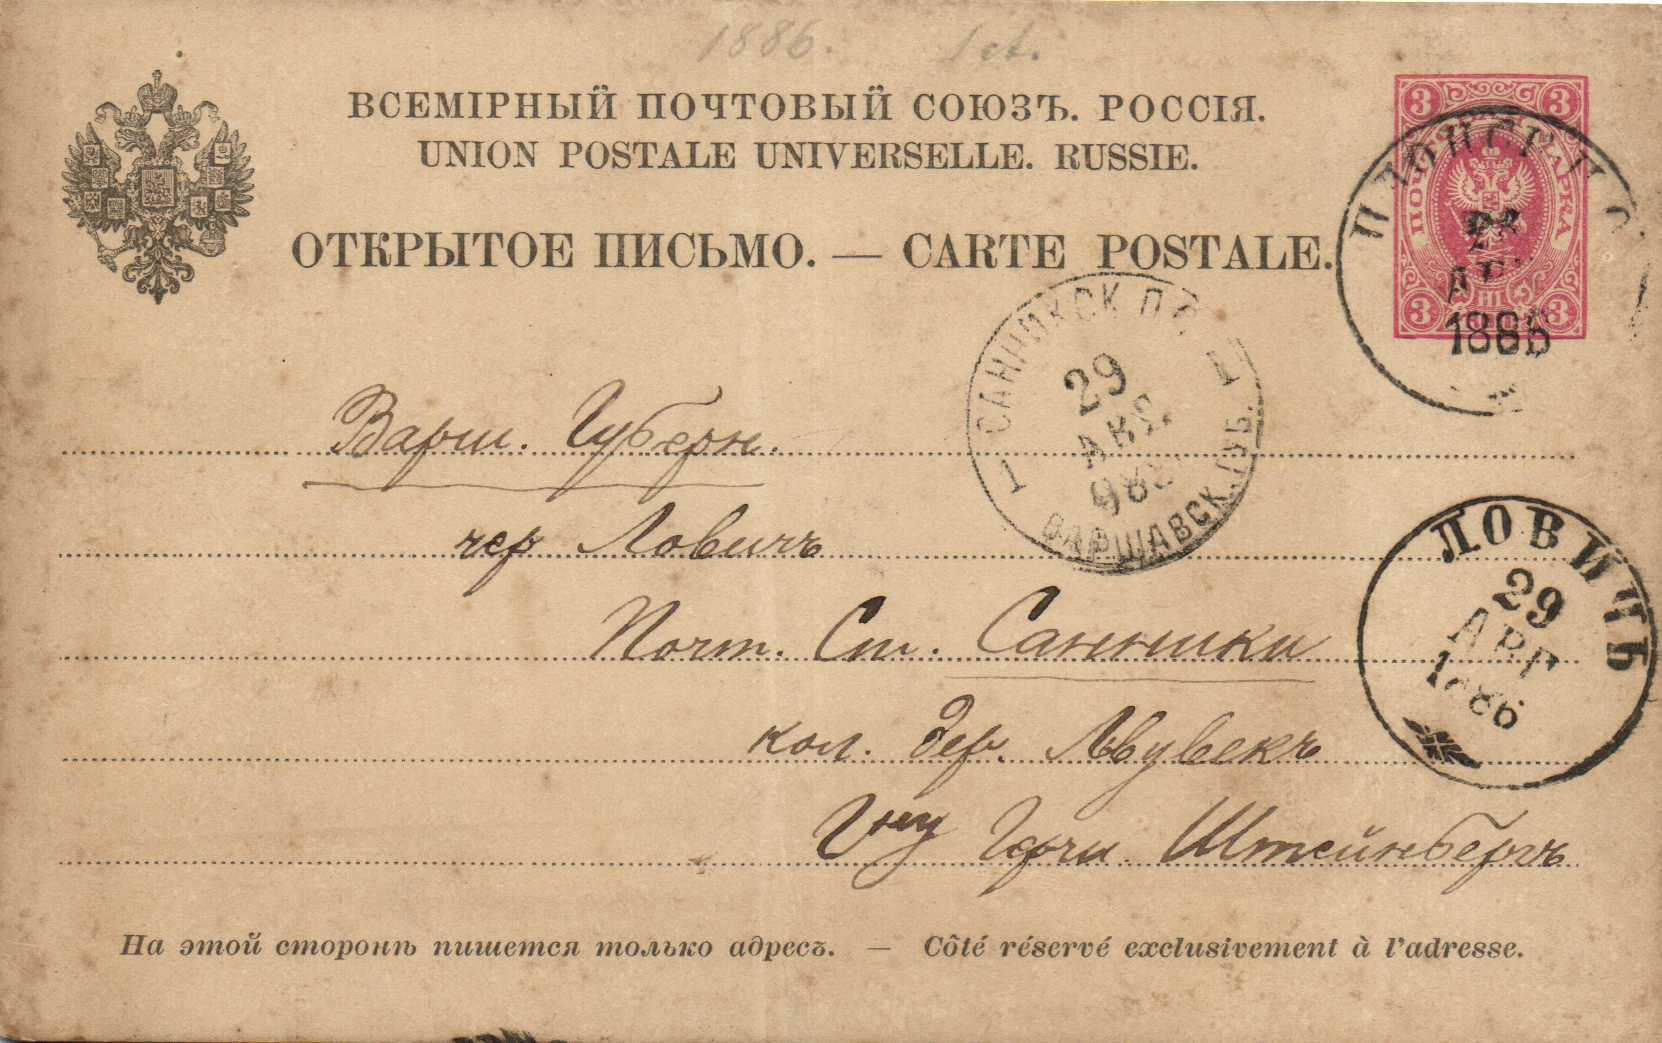 1886. 1 ct.
ВСЕМІРНЫЙ ПОЧТОВЫЙ СОЮЗЪ. РОССІЯ.
UNION POSTALE UNIVERSELLE. RUSSIE.
ОТКРЫТОЕ ПИСЬМО. — CARTE POSTALE.
3 3
ПОЧТ МАРКА
3 3
АВГ
1886
САННИКСК. П. О.
1 29 1
АВГ.
ВАРШАВСК. ГУБ.
Варш. Губерн.
чер Ловичъ
Почт. Ст. Санники
кол. дер. Львувекъ
Гну Герчи Штейнбергъ
ЛОВИЧЪ
29
АВГ
1886
На этой сторонѣ пишется только адресъ. — Côté réservé exclusivement à l'adresse.